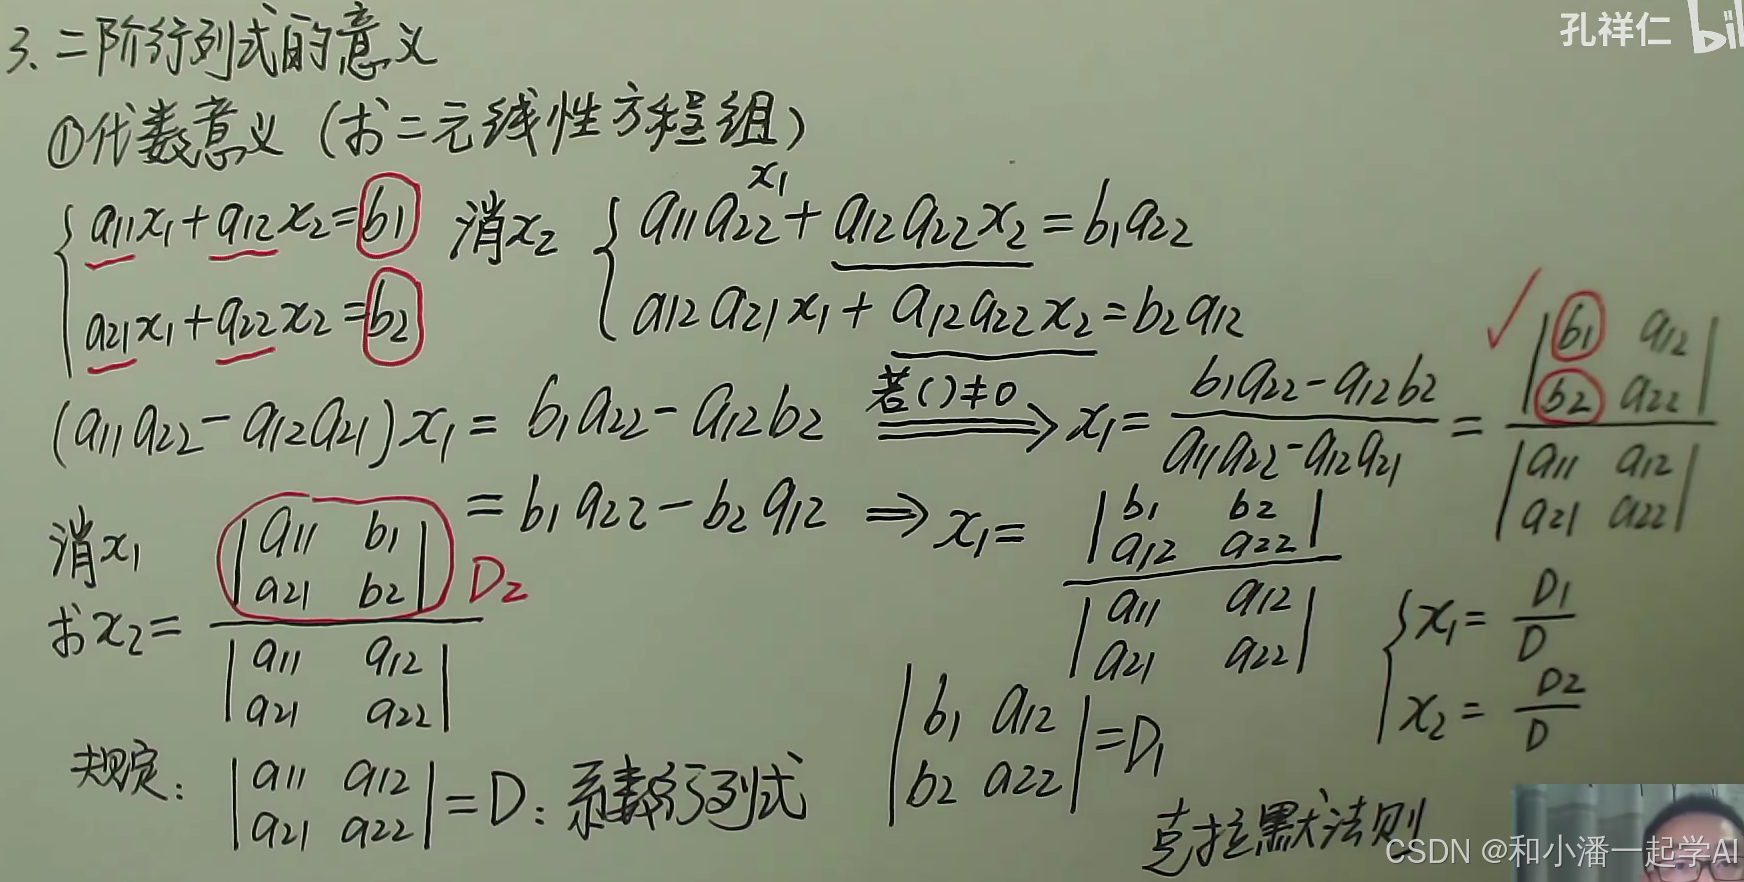 孔祥仁 bil
3. 二阶行列式的意义
①代数意义 (求二元线性方程组)
{ a11x1 + a12x2 = b1
a21x1 + a22x2 = b2
消x2 { a11a22x1 + a12a22x2 = b1a22
a12a21x1 + a12a22x2 = b2a12
(a11a22 - a12a21)x1 = b1a22 - a12b2 若( )≠0 ⇒ x1 = (b1a22 - a12b2) / (a11a22 - a12a21) = |b1 a12; b2 a22| / |a11 a12; a21 a22| ✓
= b1a22 - b2a12 ⇒ x1 = |b1 b2; a12 a22| / |a11 a12; a21 a22|
消x1
求x2 = |a11 b1; a21 b2| / |a11 a12; a21 a22| D2
{ x1 = D1/D
x2 = D2/D
规定: |a11 a12; a21 a22| = D: 系数行列式
|b1 a12; b2 a22| = D1
克拉默法则
CSDN @和小潘一起学AI